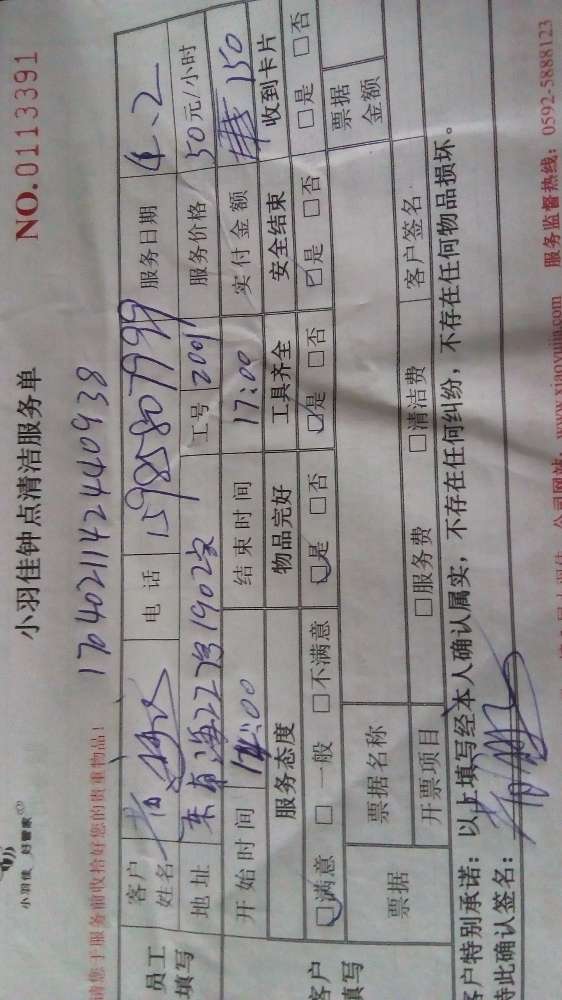 小羽佳 好管家
小羽佳钟点清洁服务单
NO.0113391
请您于服务前收拾好您的贵重物品!
17040211424440938
员工填写
客户姓名
电话 15985807999
服务日期 4.2
地址
工号 2001
服务价格 50元/小时
开始时间 14:00
结束时间 17:00
实付金额 150
客户填写
服务态度 物品完好 工具齐全 安全结束 收到卡片
☑满意 □一般 □不满意 ☑是 □否 ☑是 □否 ☑是 □否 □是 □否
票据
票据名称
票据金额
开票项目 □服务费 □清洁费 客户签名
客户特别承诺:以上填写经本人确认属实,不存在任何纠纷,不存在任何物品损坏。
特此确认签名:
公司网站:www.xiaoyujia.com 服务监督热线:0592-5888123